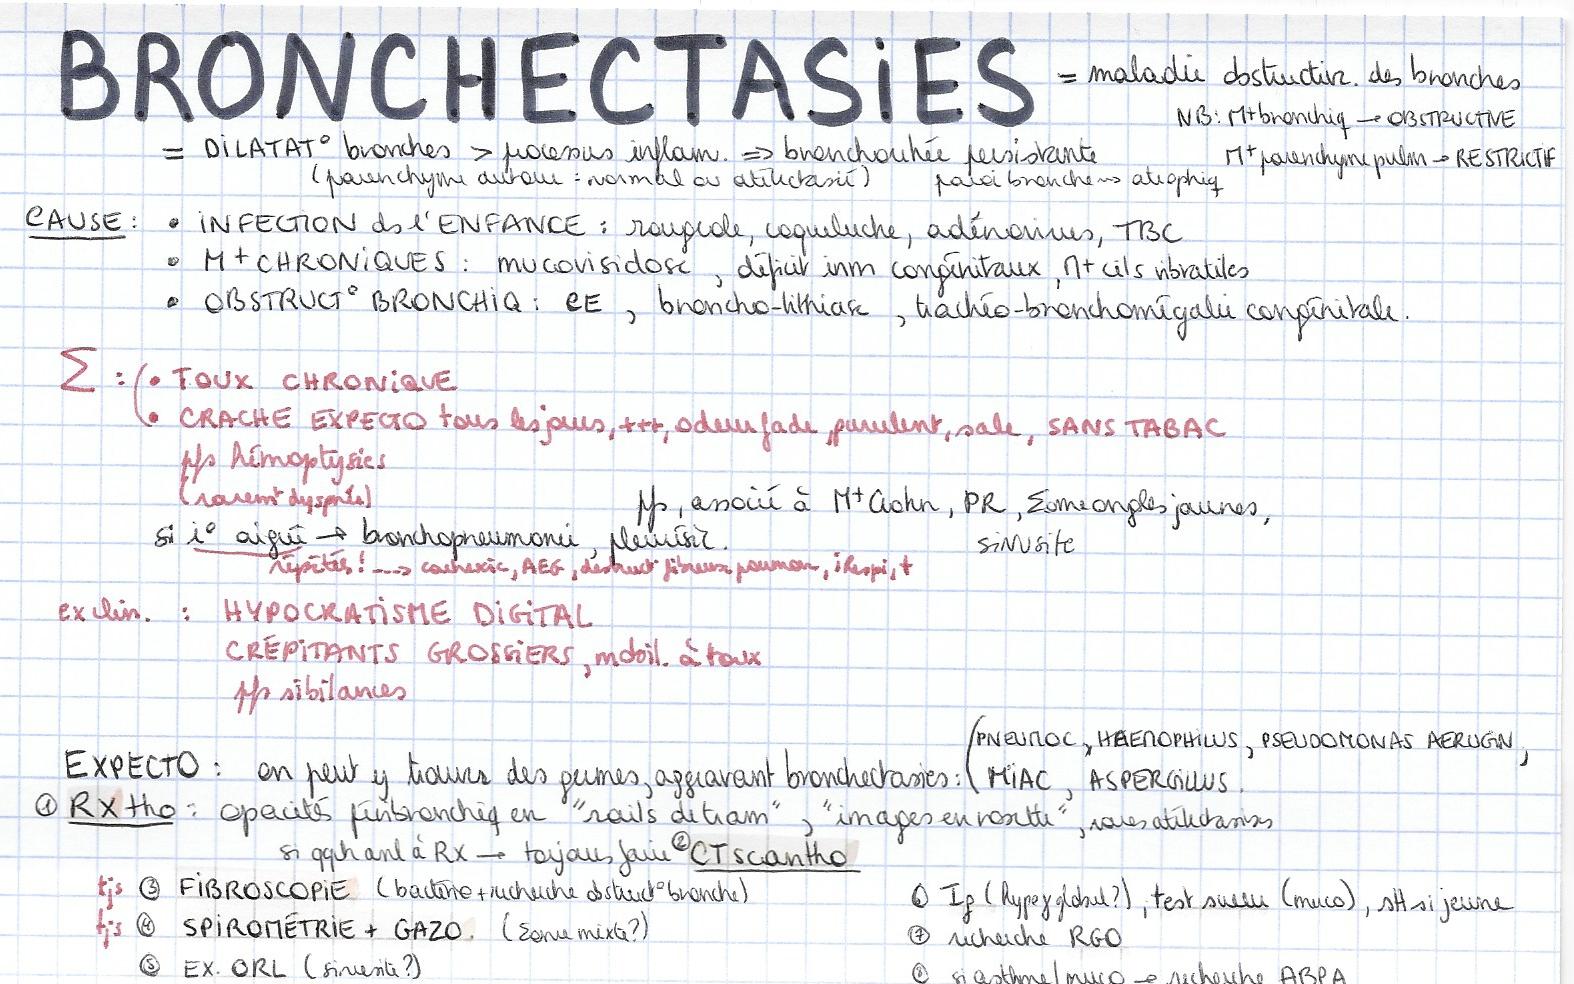 BRONCHECTASIES = maladie obstructiv. des bronches
NB: M+ bronchiq → OBSTRUCTIVE
= DILATAT° bronches > processus inflam. => bronchorrhée persistante
M+ parenchyme pulm → RESTRICTIF
(parenchyme autour = normal ou atélectasié) paroi bronche ~> atrophiq
CAUSE : • INFECTION ds l'ENFANCE : rougeole, coqueluche, adénovirus, TBC
• M+ CHRONIQUES : mucoviscidose, déficit imm congénitaux, M+ cils vibratiles
• OBSTRUCT° BRONCHIQ : CE, broncho-lithiase, trachéo-bronchomégalie congénitale.
Σ : • TOUX CHRONIQUE
• CRACHE EXPECTO tous les jours, +++, odeur fade, purulent, sale, SANS TABAC
pfs hémoptysies
(raremt dyspnée)
pfs, associé à M+ Crohn, PR, Σome ongles jaunes,
sinusite
si i° aiguë → bronchopneumonie, pleurésie.
répétées! ---> cachexie, AEG, destruct° fibreuse poumon, iRespi, †
ex clin. : HYPOCRATISME DIGITAL
CRÉPITANTS GROSSIERS, mobil. à toux
pfs sibilances
(PNEUMOC, HAEMOPHILUS, PSEUDOMONAS AERUGIN,
EXPECTO : on peut y trouver des germes, aggravant bronchectasies : MIAC, ASPERGILLUS.
① RX tho : opacités péribronchiq en "rails de tram", "images en rosette", rares atélectasies
si qqch anl à RX → toujours faire ② CT scan tho
tjs ③ FIBROSCOPIE (bactério + recherche obstruct° bronche)
tjs ④ SPIROMÉTRIE + GAZO. (Σome mixte?)
⑤ EX. ORL (sinusite?)
⑥ Ig (hypoγglobul?), test sueur (muco), si jeune
⑦ recherche RGO
⑧ si asthme/muco → recherche ABPA